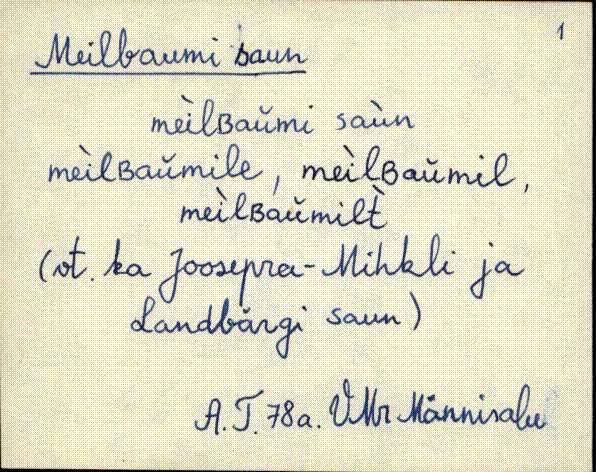 1
Meilbaumi saun
mèilʙaŭmi saùn
mèilʙaŭmile, mèilʙaŭmil,
mèilʙaŭmilt̀
(vt. ka Joosepra-Mihkli ja
Landbärgi saun)
A.T. 78a. VMr Männisalu